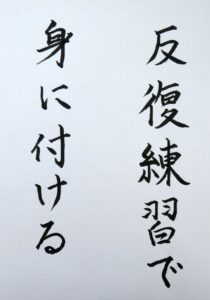 反復練習で
身に付ける